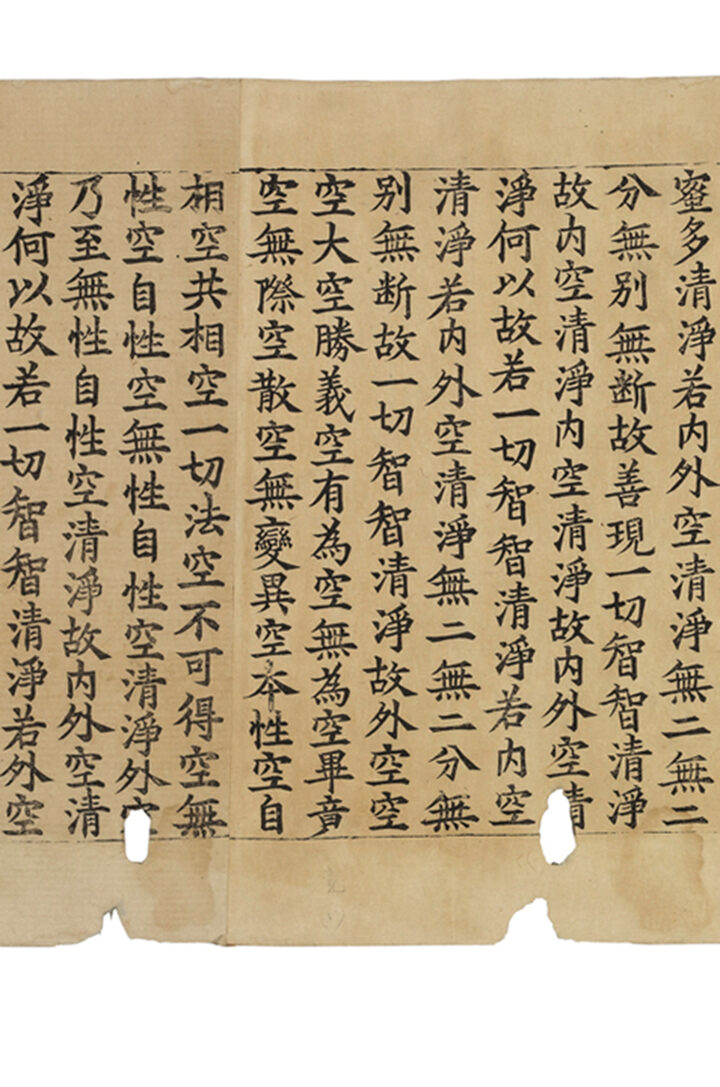 蜜多清淨若内外空清淨無二無二
分無别無断故善現一切智智清淨
故内空清淨内空清淨故内外空清
淨何以故若一切智智清淨若内空
清淨若内外空清淨無二無二分無
别無断故一切智智清淨故外空空
空大空勝義空有為空無為空畢竟
空無際空散空無變異空本性空自
相空共相空一切法空不可得空無
性空自性空無性自性空清淨外空
乃至無性自性空清淨故内外空清
淨何以故若一切智智清淨若外空